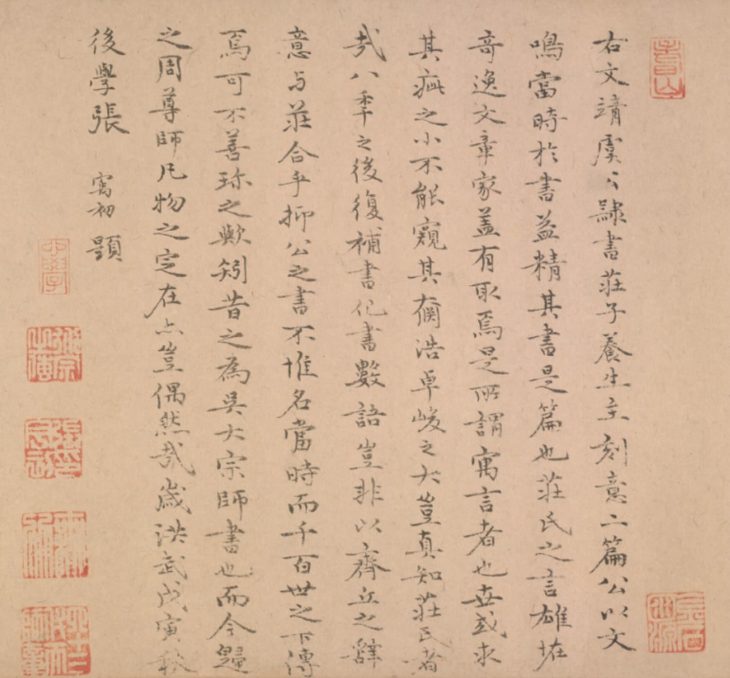 右文靖虞公隸書莊子養生主刻意二篇公以文
鳴當時於書益精其書是篇也莊氏之言雄
奇逸文章家盖有取焉是所謂寓言者也世或求
其疵之小不能窺其浩卓峻之大豈真知莊氏者
哉八季之後復補書仍書數語豈非以齊丘之辭
意与莊合乎抑公之書不惟名當時而千百世之下傳
焉可不善珎之歟矧昔之為吳大宗師書也而今歸
之周尊師凡物之定在亦豈偶然哉歲洪武戊寅秋
後學張宇初題